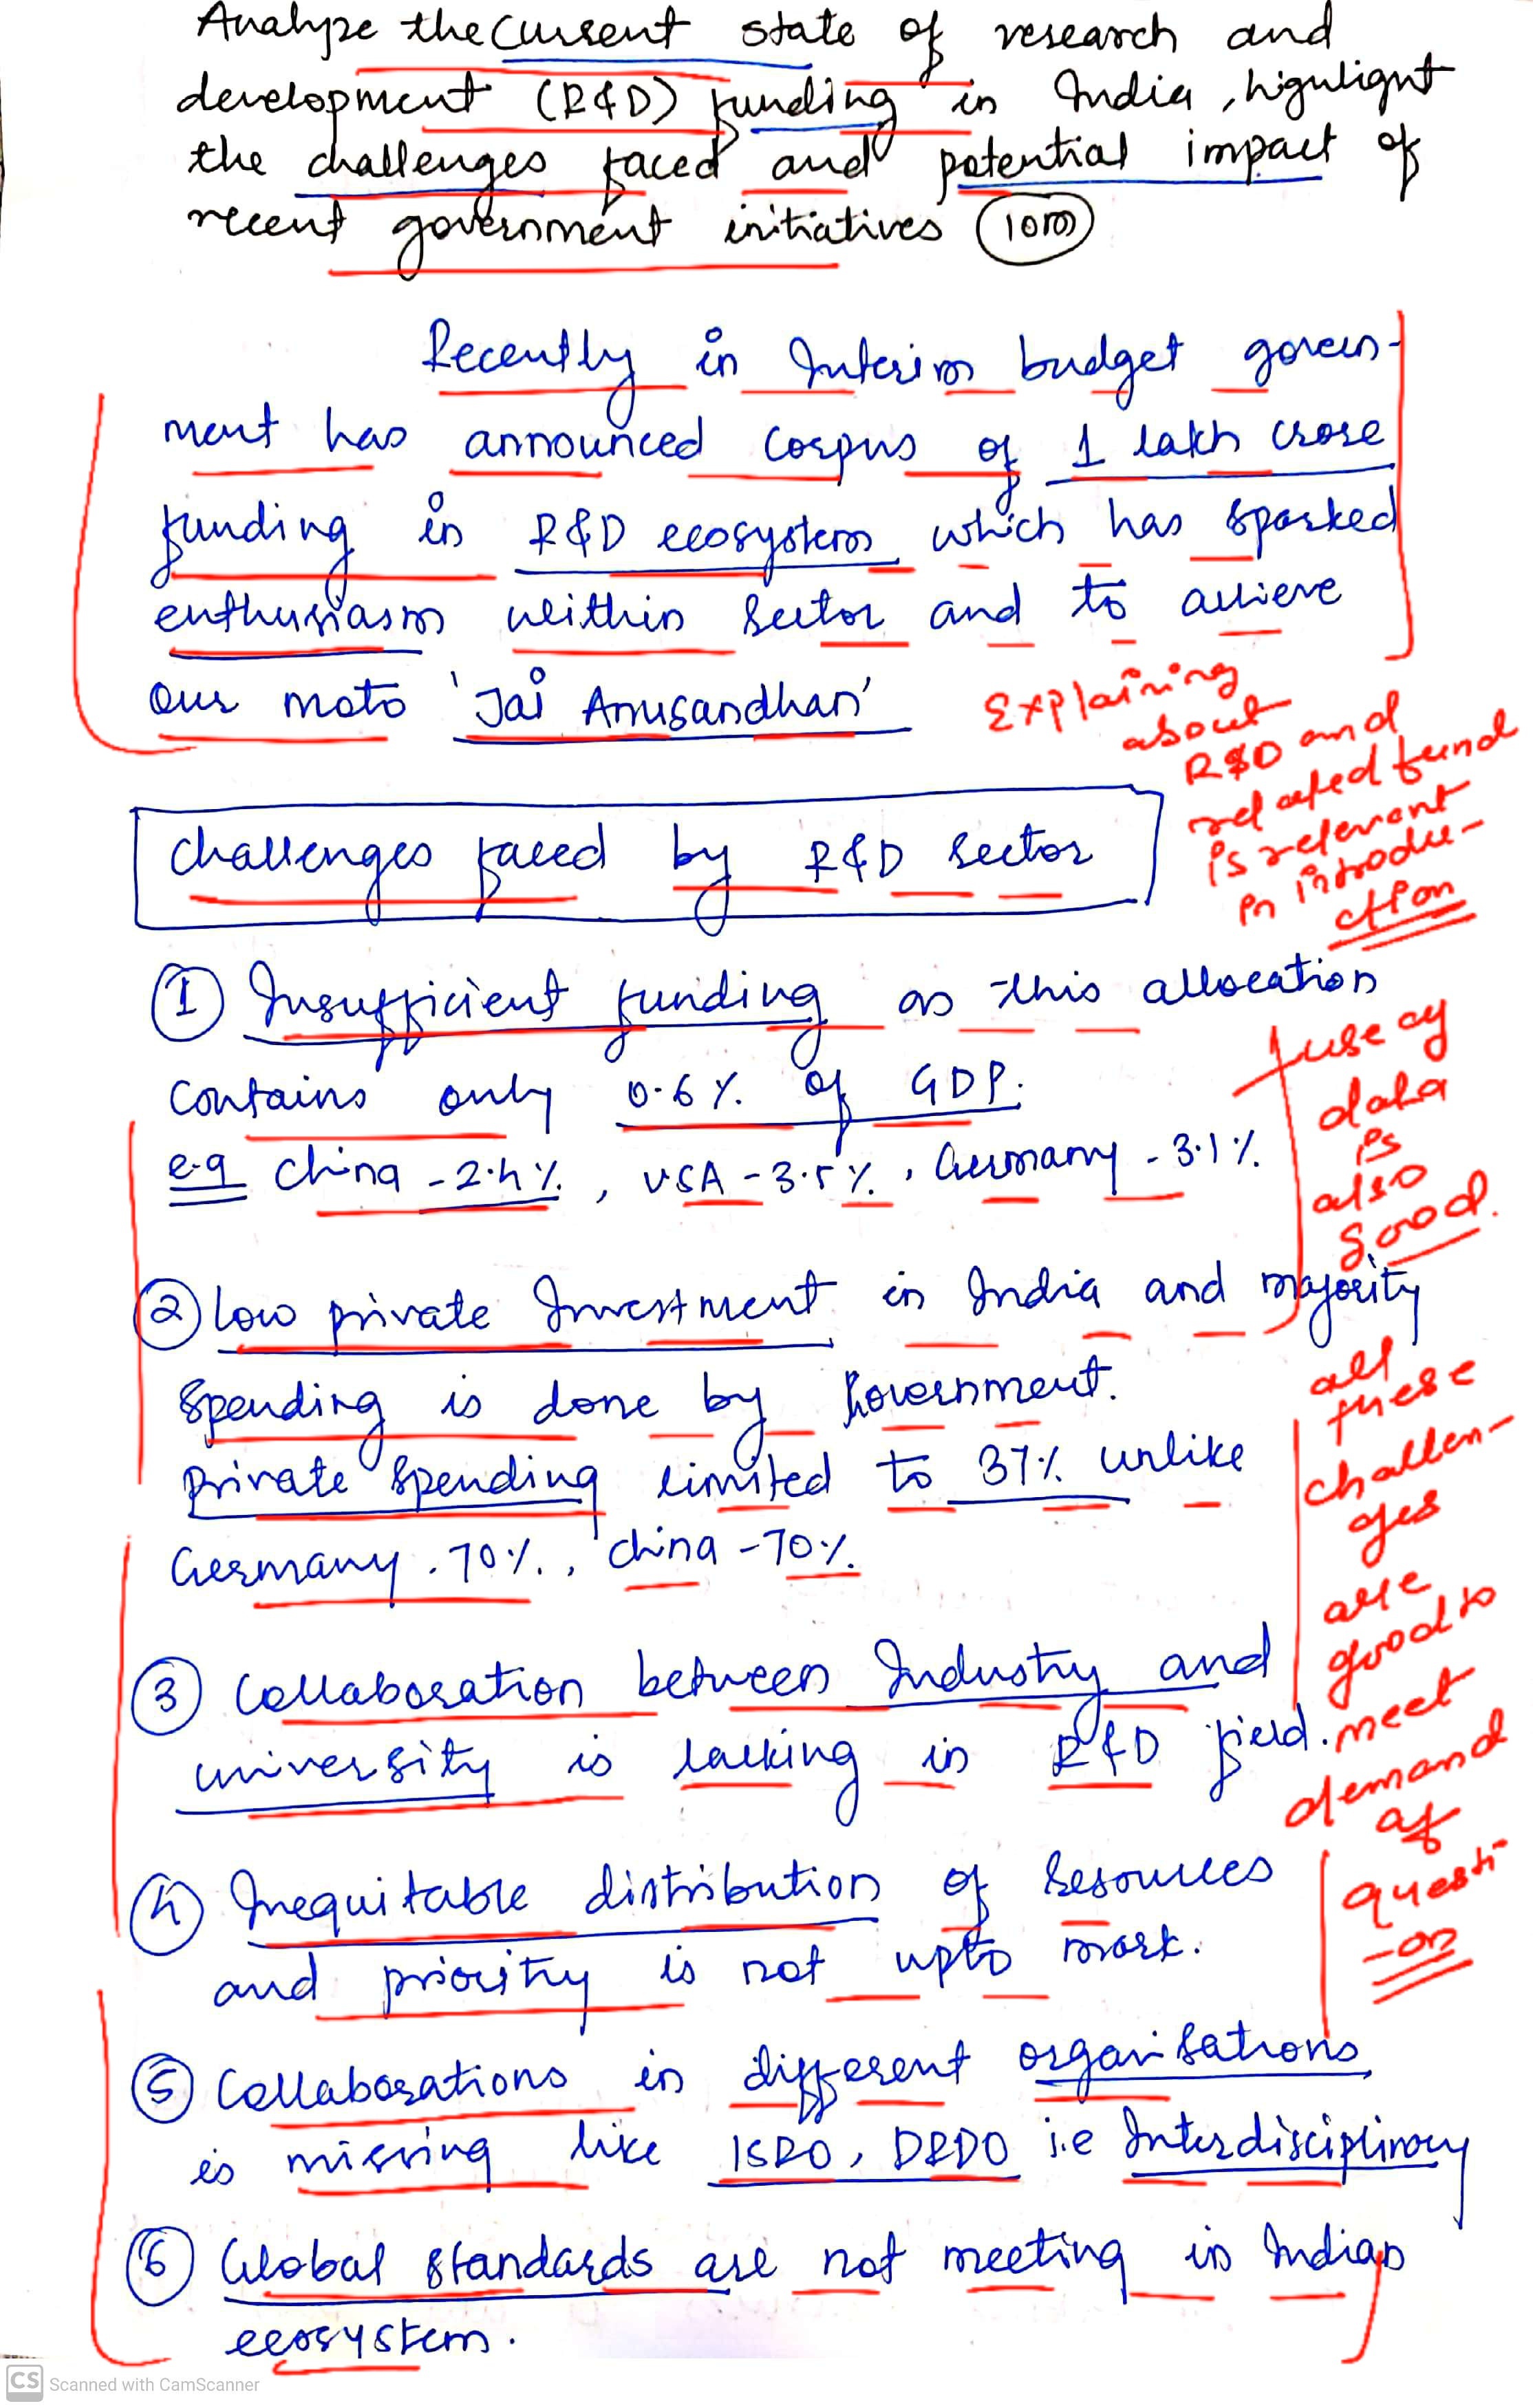 Analyze the current state of research and
development (R&D) funding in India, highlight
the challenges faced and potential impact of
recent government initiatives (10m)
Recently in Interim budget govern-
ment has announced corpus of 1 lakh crore
funding in R&D ecosystem which has sparked
enthusiasm within sector and to achieve
our moto 'Jai Anusandhan'
Explaining
about
R&D and
related fund
is relevant
in introdu-
ction
Challenges faced by R&D sector
① Insufficient funding as this allocation
contains only 0.6% of GDP.
e.g China - 2.4%, USA - 3.5%, Germany - 3.1%
use of
data
is
also
good.
② Low private Investment in India and majority
spending is done by Government.
private spending limited to 37% unlike
Germany - 70%, China - 70%
③ Collaboration between Industry and
university is lacking in R&D field.
④ Inequitable distribution of resources
and priority is not upto mark.
all
these
challen-
ges
are
good to
meet
demand
of
questi-
-on
⑤ Collaborations in different organisations
is missing like ISRO, DRDO i.e Interdisciplinary
⑥ Global standards are not meeting in Indian
ecosystem.
CS Scanned with CamScanner